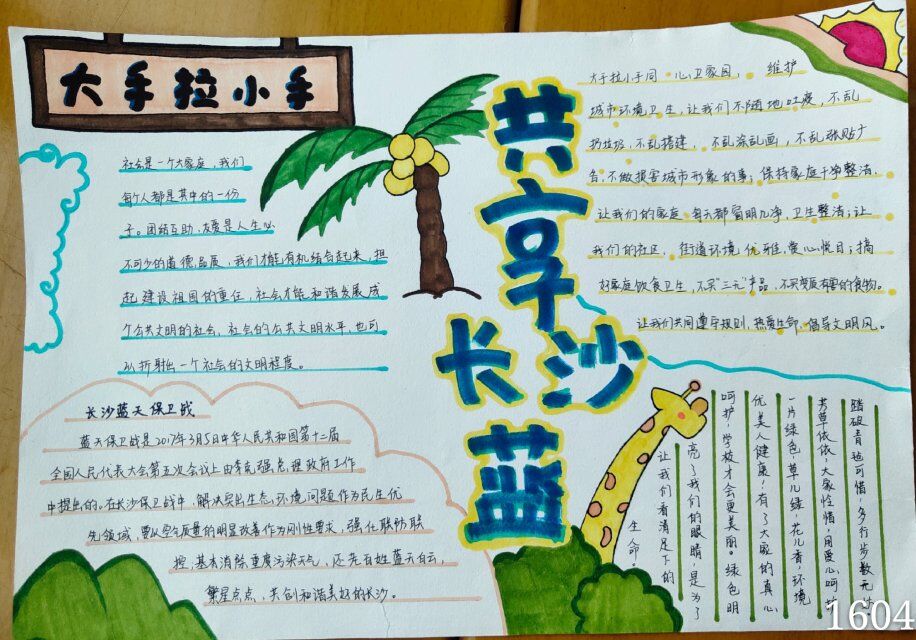 大手拉小手
社会是一个大家庭，我们
每个人都是其中的一份
子。团结互助、友爱是人生必
不可少的道德品展，我们才能有机结合起来，担
起建设祖国的重任，社会才能和谐发展成
个公共文明的社会，社会的公共文明水平，也可
以折射出一个社会的文明程度。
长沙蓝天保卫战
蓝天保卫战是2017年3月5日中华人民共和国第十二届
全国人民代表大会第五次会议上由李克强总理政府工作
中提出的。在长沙保卫战中，解决突出生态环境问题作为民生优
先领域，要以空气质量的明显改善作为刚性要求，强化联防联
控，基本消除重度污染天气，还老百姓蓝天白云，
繁星点点，共创和谐美好的长沙。
共享长沙蓝
大手拉小手同心卫家园，维护
城市环境卫生，让我们不随地吐痰，不乱
扔垃圾，不乱搭建，不乱涂乱画，不乱张贴广
告，不做损害城市形象的事；保持家庭干净整洁，
让我们的家庭每天都窗明几净，卫生整洁；让
我们的社区，街道环境优雅，赏心悦目；搞
好家庭饮食卫生，不买“三无”产品，不买变质有害的食物。
让我们共同遵守规则，热爱生命，倡导文明风。
踏破青也可惜，多行步数无
芳草依依，大家怜惜，用爱心呵护
一片绿色，草儿绿，花儿香，环境
优美人健康！有了大家的真心
呵护，学校才会更美丽。绿色明
亮了我们的眼睛，是为了
让我们看清足下的
生命。
1604